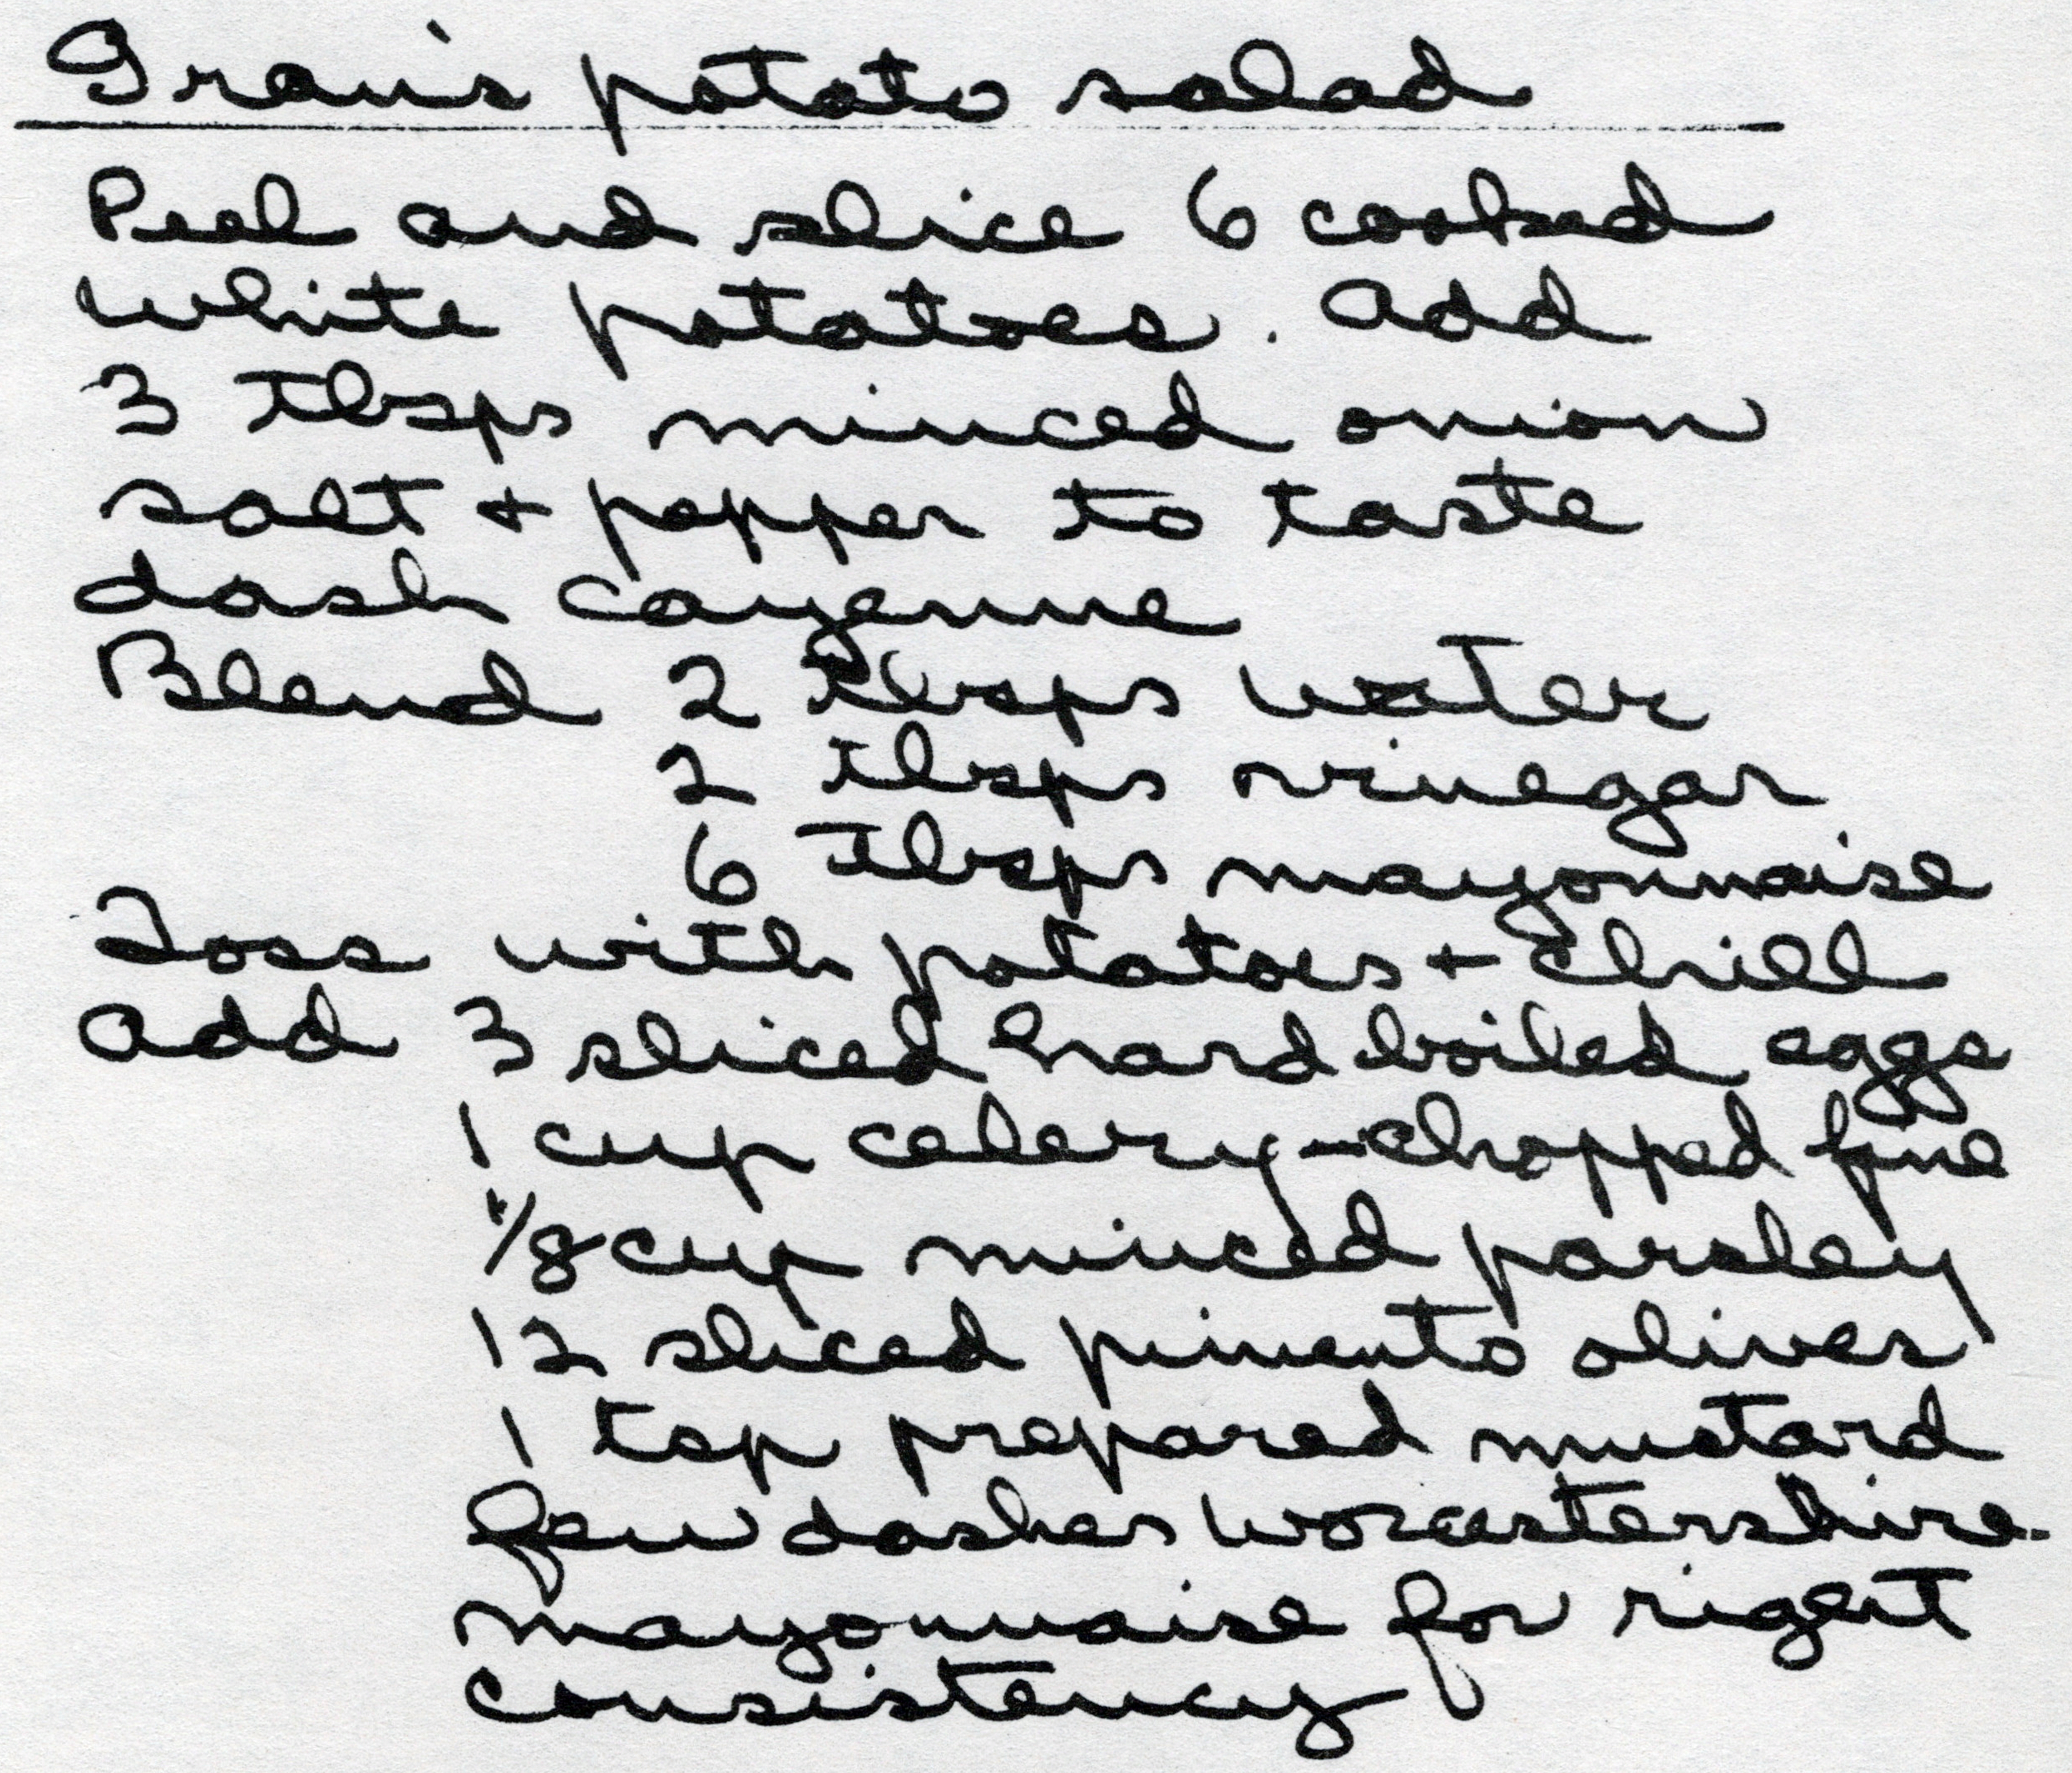 Gran's potato salad
Peel and slice 6 cooked
white potatoes. Add
3 Tbsps minced onion
salt + pepper to taste
dash cayenne
Blend 2 Tbsps water
2 Tbsps vinegar
6 Tbsps mayonnaise
Toss with potatoes + chill
Add 3 sliced hard boiled eggs
1 cup celery - chopped fine
1/8 cup minced parsley
12 sliced pimento olives
1 tsp prepared mustard
few dashes worcestershire
mayonnaise for right
consistency